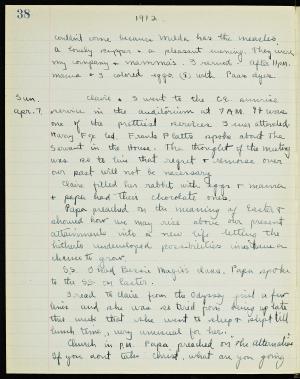 38
1912.
couldn't come because Hulda has the measles.
a lovely supper & a pleasant evening. They were
my company & mamma's. I retired after 11 P.M.
mama & I colored eggs, with Paas dyes.
Sun. Claire & I went to the C.E. sunrise
Apr. 7. service in the auditorium at 7 A.M. It was
one of the prettiest services I ever attended
Harry Fox led. Frank Platts spoke about The
Servant in the House. The thought of the meeting
was so to live that regret & remorse over
our past will not be necessary
Claire filled her rabbit with eggs & mamma
& papa had their chocolate ones.
Papa preached on the meaning of Easter &
showed how we may rise above our present
attainments into a new life letting the
hitherto undeveloped possibilities have a
chance to grow.
S.S. I had Bessie Magee's class. Papa spoke
to the S.S. on Easter.
I read to Claire from the Odyssey just a few
lines and she was so tired from being up late
this week that she went to sleep & slept till
lunch time, very unusual for her.
Church in P.M. Papa preached on the alternative
If you don't take Christ, what are you going